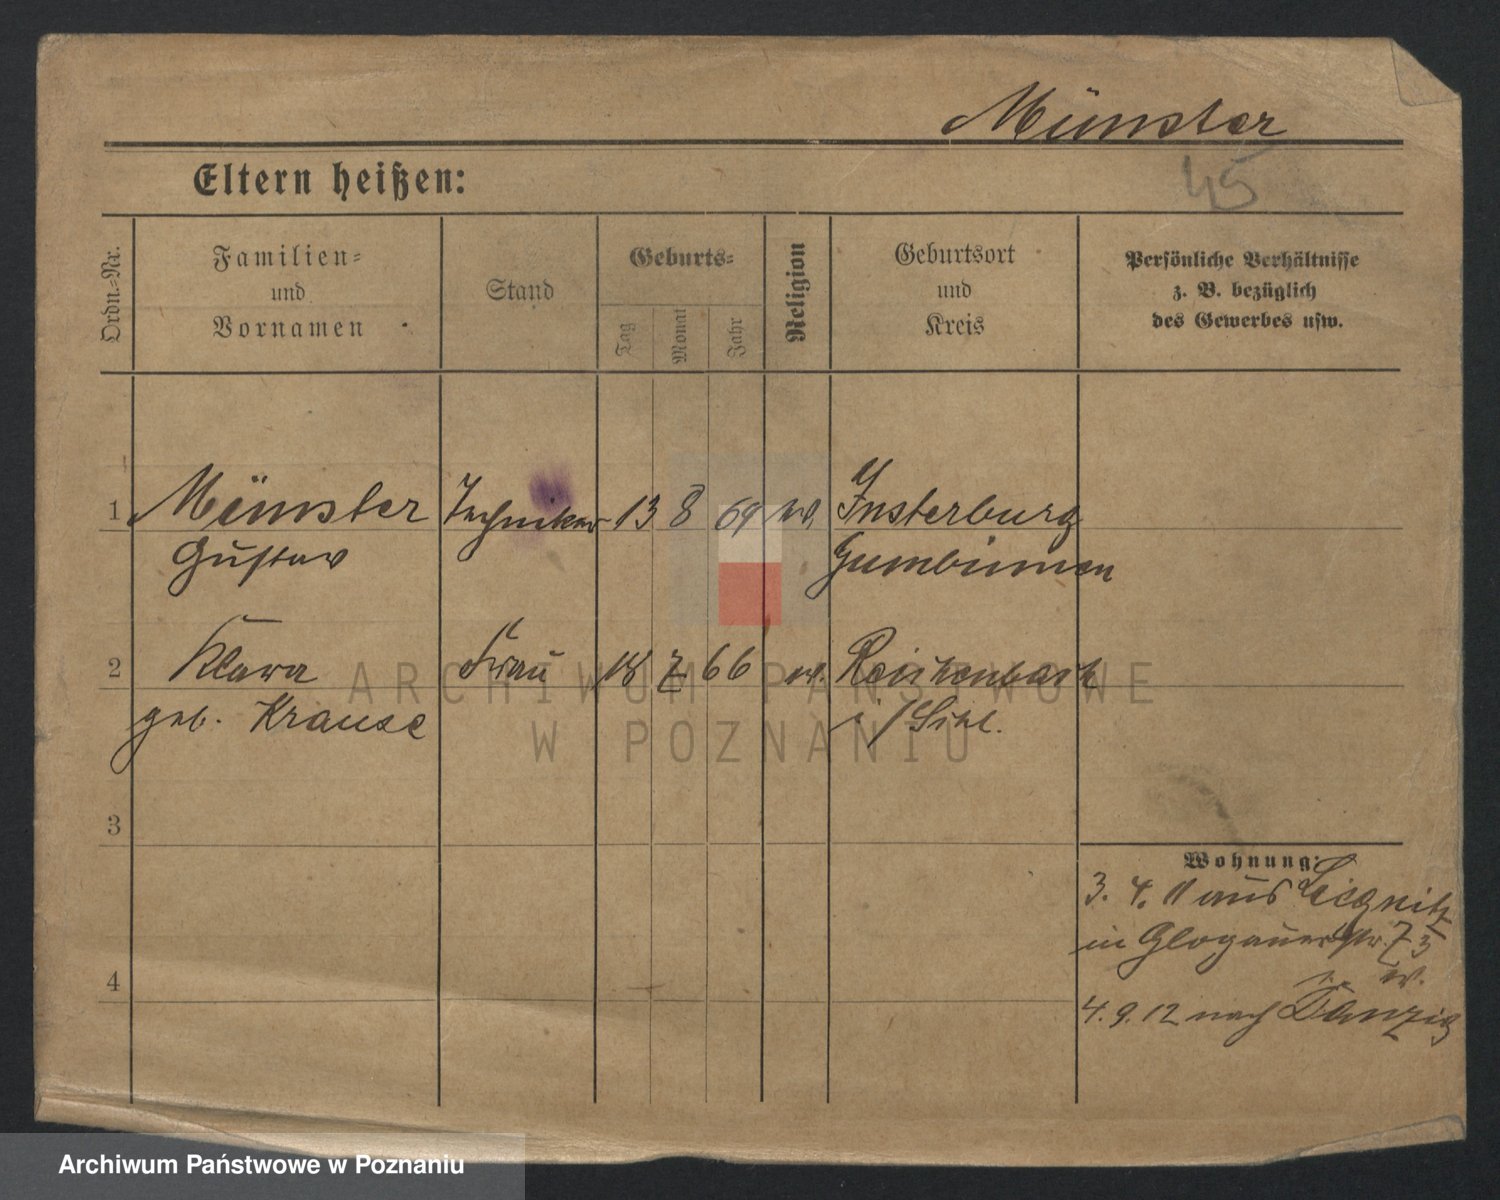 Münster
45
Eltern heißen:
Ordn.-Nr.
Familien-
und
Vornamen
Stand
Geburts-
Tag
Monat
Jahr
Religion
Geburtsort
und
Kreis
Persönliche Verhältnisse
z. B. bezüglich
des Gewerbes usw.
1 Münster Techniker 13 8 69 Insterburg
Gustav Gumbinnen
2 Klara Frau 18 7 66 ev. Reichenbach
geb. Krause i/Schl.
3
4
Wohnung:
3. 4. 11 aus Liegnitz
in Glogauerstr. 73
4. 9. 12 nach Danzig
ARCHIWUM PAŃSTWOWE
W POZNANIU
Archiwum Państwowe w Poznaniu